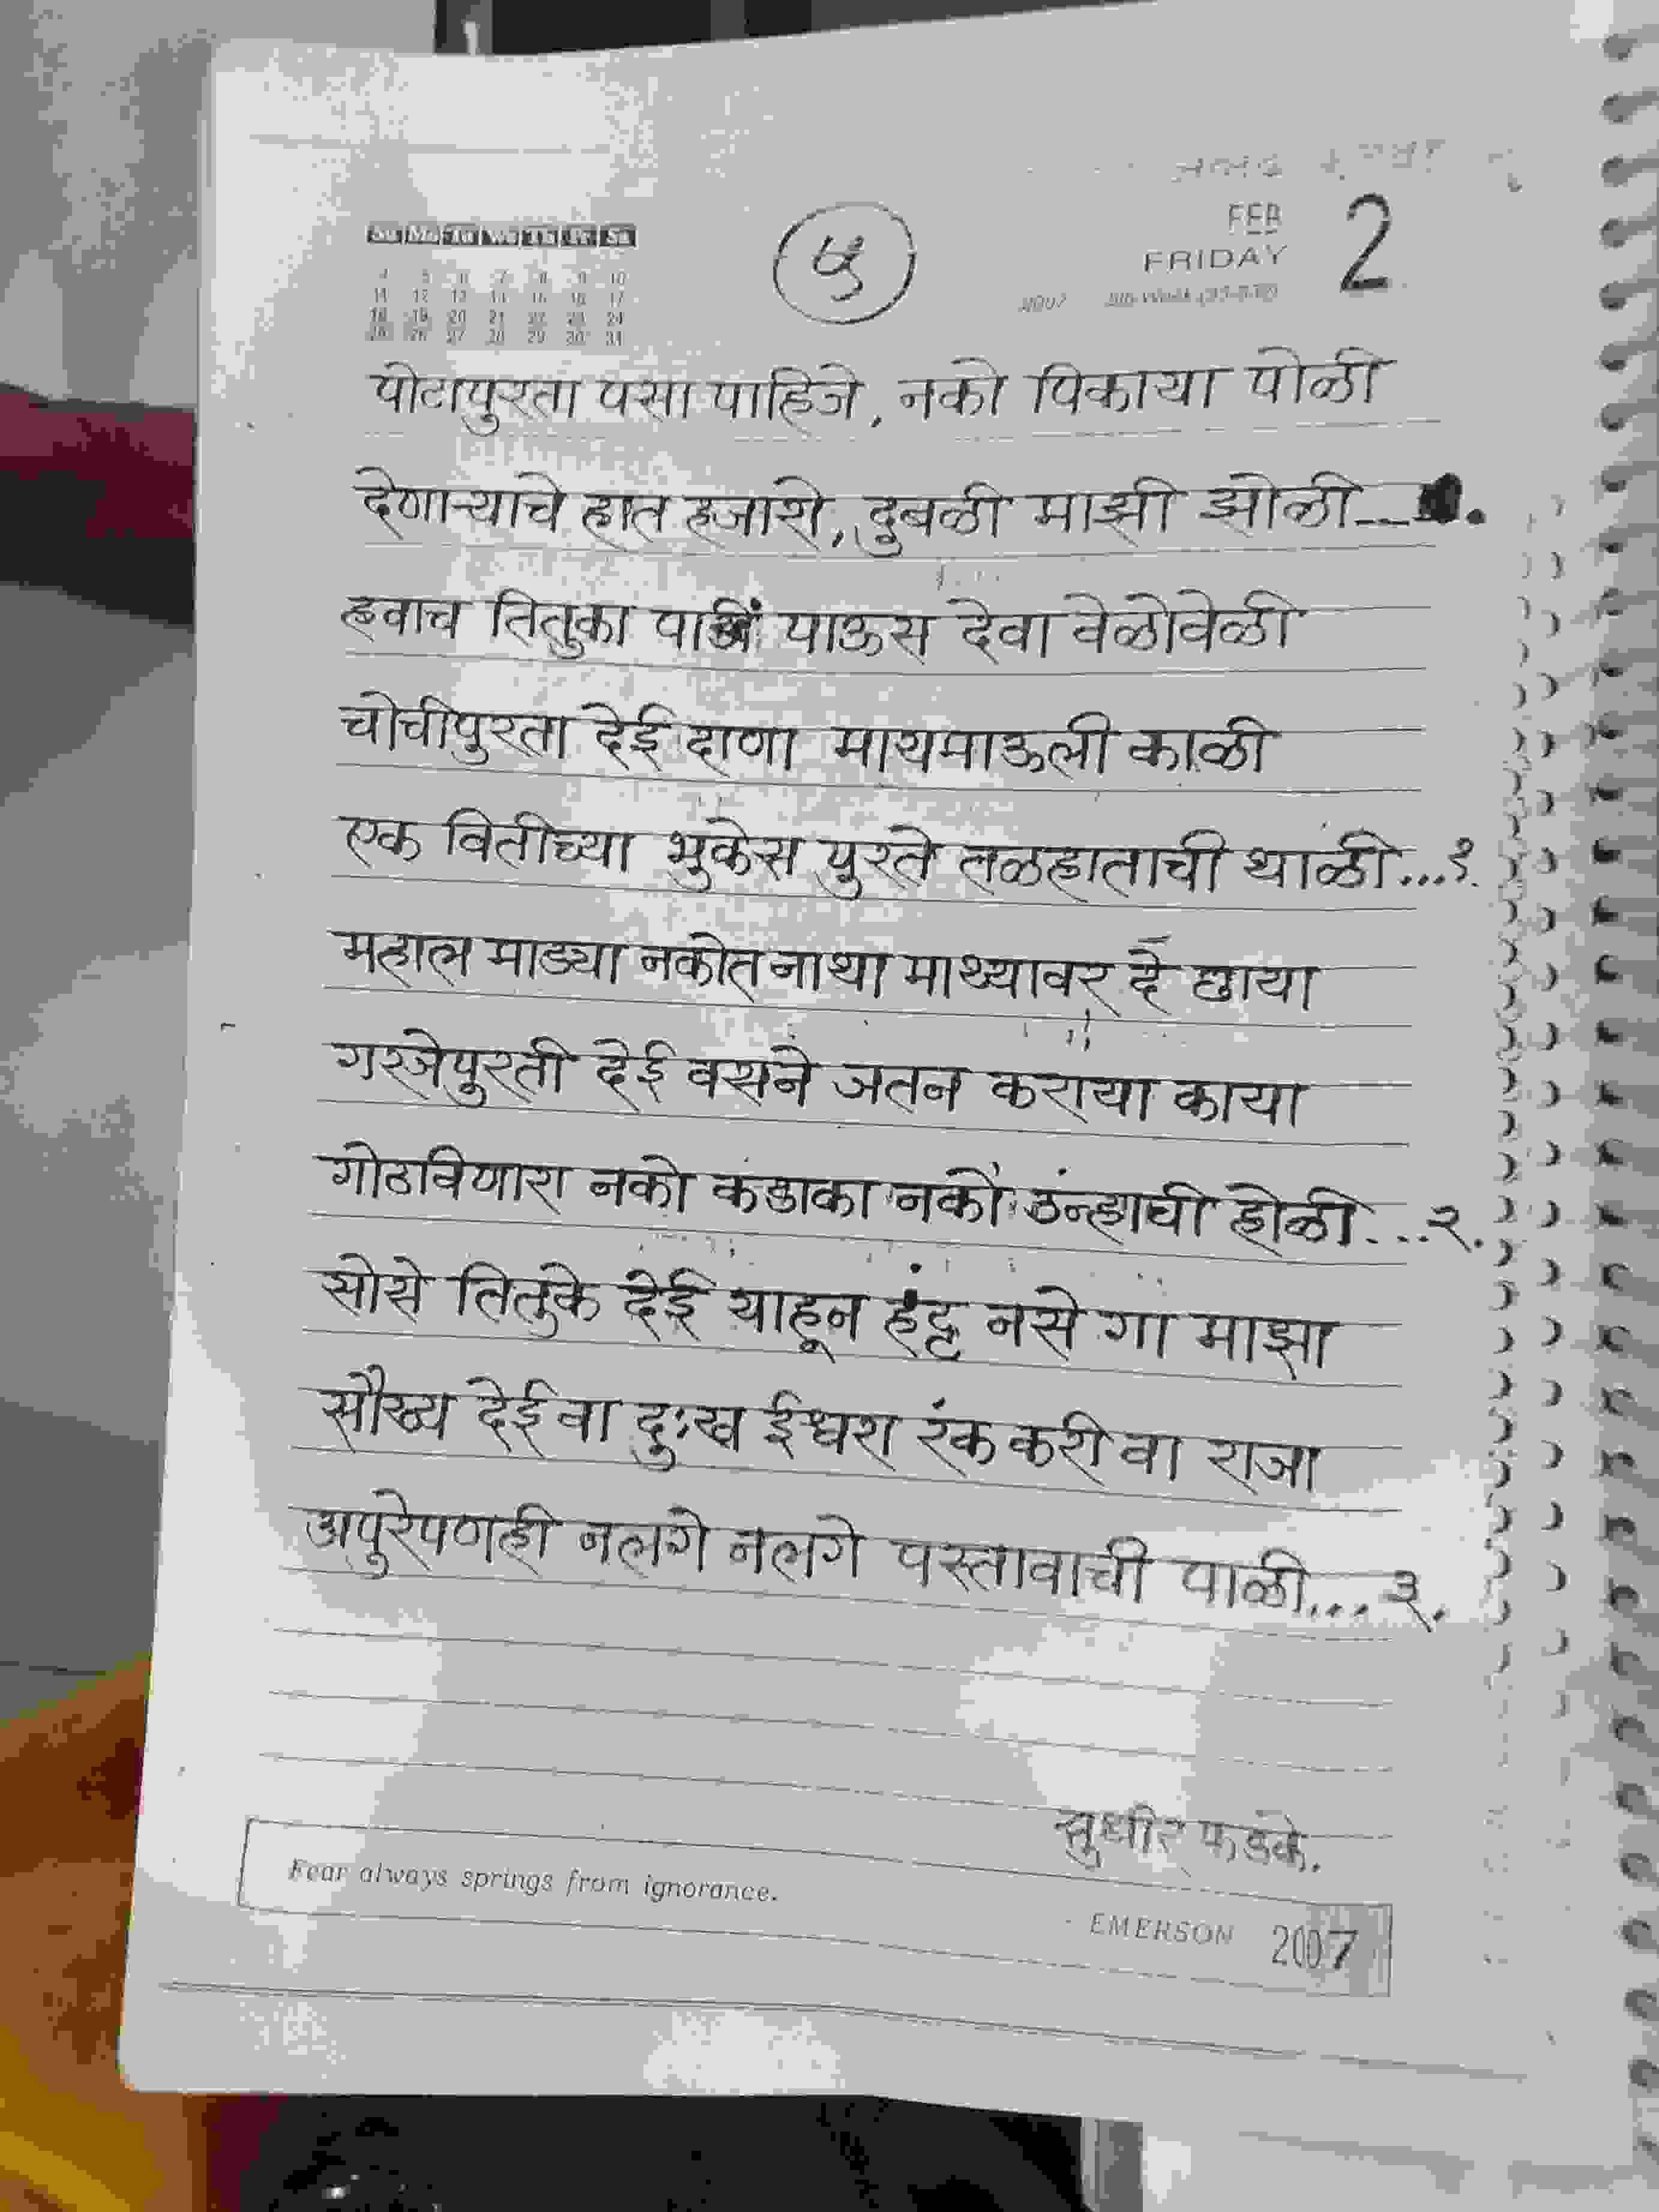 Su Mo Tu We Th Fr Sa
4 5 6 7 8 9 10
11 12 13 14 15 16 17
18 19 20 21 22 23 24
25 26 27 28 29 30 31
५
FEB 2
FRIDAY
2007
पोटापुरता पसा पाहिजे, नको पिकाया पोळी
देणाऱ्याचे हात हजारो, दुबळी माझी झोळी---
हवाच तितुका पाऊस देवा वेळोवेळी
चोचीपुरता देई दाणा मायमाऊली काळी
एक वितीच्या भुकेस पुरते तळहाताची थाळी...१.
महाल माड्या नकोत नाथा माथ्यावर दे छाया
गरजेपुरती देई वसने जतन कराया काया
गोठविणारा नको कडाका नको उंन्हाची होळी...२.
सोसे तितुके देई याहून हंट्ट नसे गा माझा
सौख्य देई वा दुःख ईश्वरा रंक करी वा राजा
अपुरेपणही नलगे नलगे पस्तावाची पाळी... ३.
सुधीर फडके.
Fear always springs from ignorance.
- EMERSON 2007